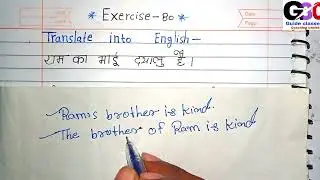 GSC
Guide classes
* Exercise-80 *
Date
Page
Translate into English-
राम का भाई दयालु है।
Ram's brother is kind.
The brother of Ram is kind